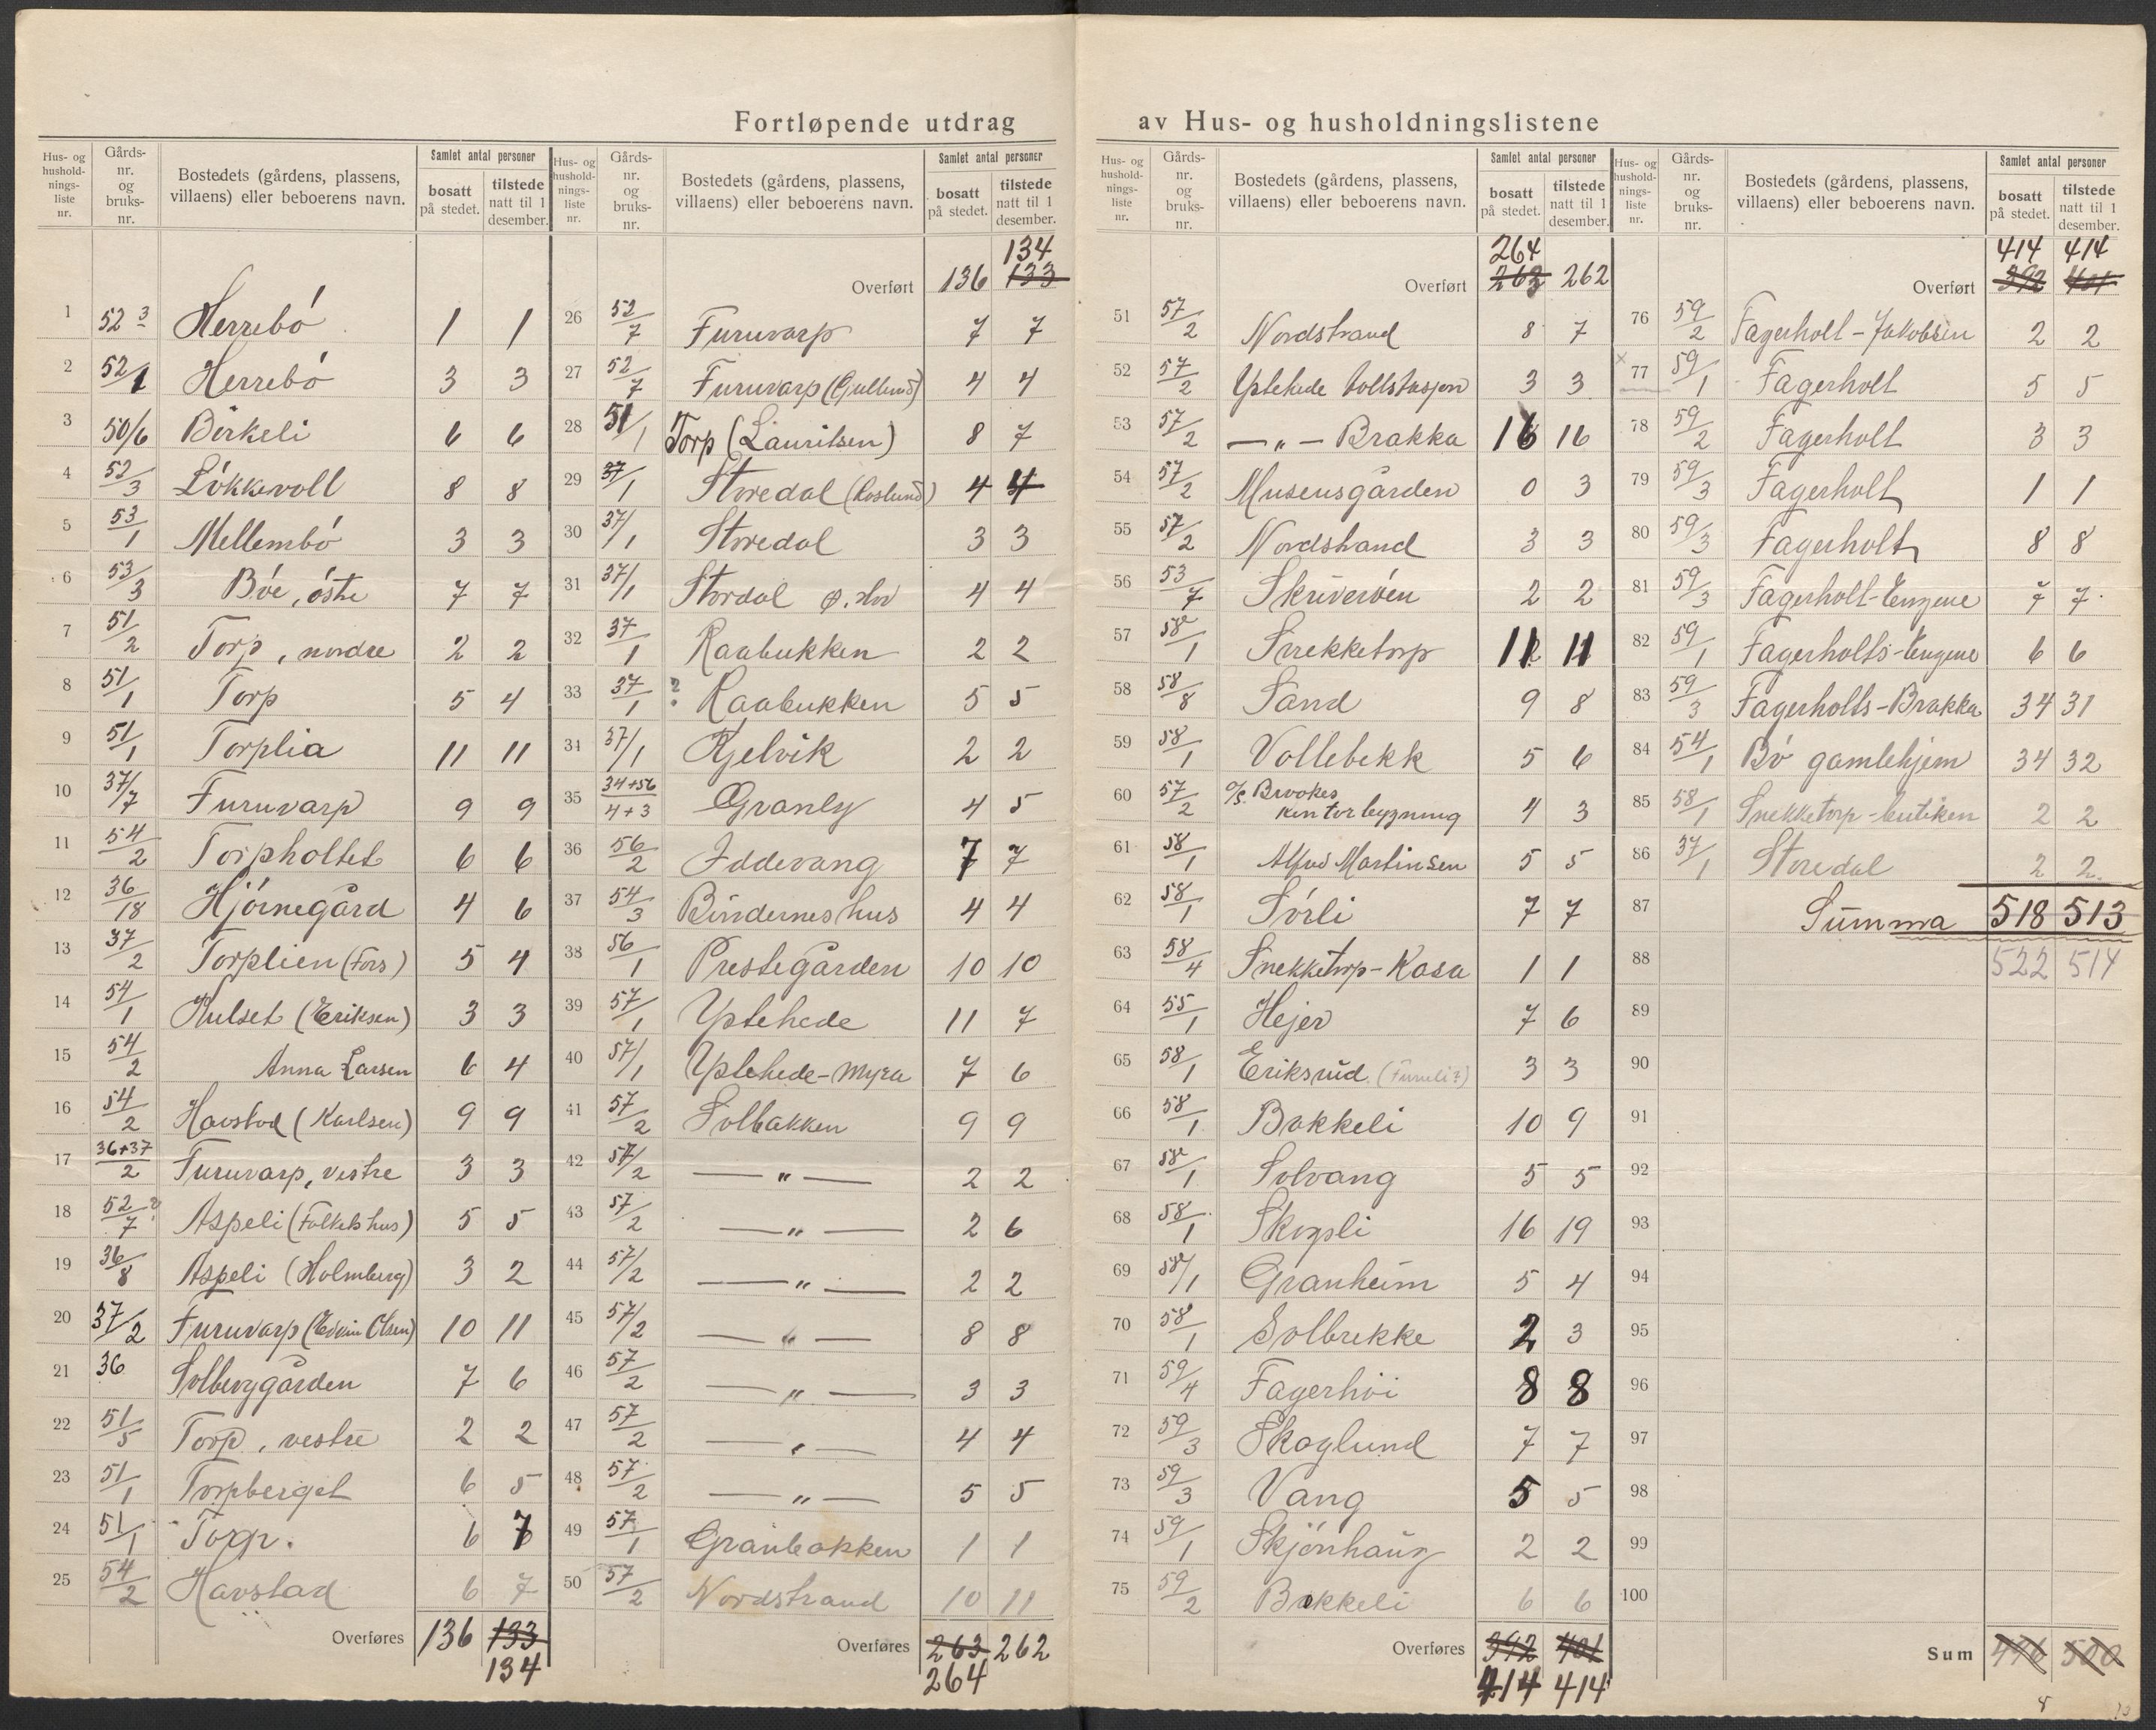 Fortløpende utdrag av Hus- og husholdningslistene
Hus- og husholdnings- liste nr. | Gårds- nr. og bruks- nr. | Bostedets (gårdens, plassens, villaens) eller beboerens navn. | Samlet antal personer: bosatt på stedet. | tilstede natt til 1 desember.
1 52 3 Herrebó 1 1
2 52/1 Herrebó 3 3
3 50/6 Birkeli 6 6
4 52/3 Lókkevoll 8 8
5 53/1 Mellembó 3 3
6 53/3 Bóe, óstre 7 7
7 51/2 Torp, nordre 2 2
8 51/1 Torp 5 4
9 51/1 Torplia 11 11
10 37/7 Furuvarp 9 9
11 54/2 Torpholtet 6 6
12 36/18 Hjórnegård 4 6
13 37/2 Torplien (Fors) 5 4
14 54/1 Hulset (Eriksen) 3 3
15 54/2 Anna Larsen 6 4
16 54/2 Havstad (Karlsen) 9 9
17 36+37/2 Furuvarp, vestre 3 3
18 52/7 ? Aspeli (Folkets hus) 5 5
19 36/8 Aspeli (Holmberg) 3 2
20 37/2 Furuvarp (Edvin Olsen) 10 11
21 36 Solberggården 7 6
22 51/5 Torp, vestre 2 2
23 51/1 Torpberget 6 5
24 51/1 Torp. 6 7
25 54/2 Havstad 6 7
Overføres 136 133
134
Hus- og husholdnings- liste nr. | Gårds- nr. og bruks- nr. | Bostedets (gårdens, plassens, villaens) eller beboerens navn. | Samlet antal personer: bosatt på stedet. | tilstede natt til 1 desember.
134
Overført 136 133
26 52/7 Furuvarp 7 7
27 52/7 Furuvarp (Gullund) 4 4
28 51/1 Torp (Lauritsen) 8 7
29 37/1 Storedal (Roslund) 4 4
30 37/1 Storedal 3 3
31 37/1 Stordal 4 4
32 37/1 Raabukken 2 2
33 37/1 ? Raabukken 5 5
34 37/1 Kjelvik 2 2
35 34+56/4+3 Granly 4 5
36 56/2 Iddevang 7 7
37 54/3 Bindernes hus 4 4
38 56/1 Prestegården 10 10
39 57/1 Ystehede 11 7
40 57/1 Ystehede-Myra 7 6
41 57/2 Solbakken 9 9
42 57/2 — " — 2 2
43 57/2 — " — 2 6
44 57/2 — " — 2 2
45 57/2 — " — 8 8
46 57/2 — " — 3 3
47 57/2 — " — 4 4
48 57/2 — " — 5 5
49 57/1 Granbakken 1 1
50 57/2 Nordstrand 10 11
Overføres 263 262
264
Hus- og husholdnings- liste nr. | Gårds- nr. og bruks- nr. | Bostedets (gårdens, plassens, villaens) eller beboerens navn. | Samlet antal personer: bosatt på stedet. | tilstede natt til 1 desember.
264
Overført 263 262
51 57/2 Nordstrand 8 7
52 57/2 Ystehede tollstasjon 3 3
53 57/2 — " — Brakka 16 16
54 57/2 Museusgården 0 3
55 57/2 Nordstrand 3 3
56 53/7 Skriverøen 2 2
57 58/1 Snekketorp 11 11
58 58/8 Sand 9 8
59 58/1 Vollebekk 5 6
60 57/2 Brookes kontorbygning 4 3
61 58/1 Alfred Martinsen 5 5
62 58/1 Sórli 7 7
63 58/4 Snekketorp-Kasa 1 1
64 55/1 Hejer 7 6
65 58/1 Eriksrud (Furuli?) 3 3
66 58/1 Bakkeli 10 9
67 58/1 Solvang 5 5
68 58/1 Skogsli 16 19
69 58/1 Granheim 5 4
70 58/1 Solbrekke 2 3
71 59/4 Fagerhói 8 8
72 59/3 Skoglund 7 7
73 59/3 Vang 5 5
74 59/1 Skjónhaug 2 2
75 59/2 Bakkeli 6 6
Overføres 392 401
414 414
Hus- og husholdnings- liste nr. | Gårds- nr. og bruks- nr. | Bostedets (gårdens, plassens, villaens) eller beboerens navn. | Samlet antal personer: bosatt på stedet. | tilstede natt til 1 desember.
414 414
Overført 392 401
76 59/2 Fagerholt-Jakobsen 2 2
x 77 59/1 Fagerholt 5 5
78 59/2 Fagerholt 3 3
79 59/3 Fagerholt 1 1
80 59/3 Fagerholt 8 8
81 59/3 Fagerholt-Engene 7 7
82 59/1 Fagerholts-Engene 6 6
83 59/3 Fagerholts-Brakka 34 31
84 54/1 Bó gamlehjem 34 32
85 58/1 Snekketorp-butiken 2 2
86 37/1 Storedal 2 2
87 Summa 518 513
88 522 514
89
90
91
92
93
94
95
96
97
98
99
100
Sum 496 500
8